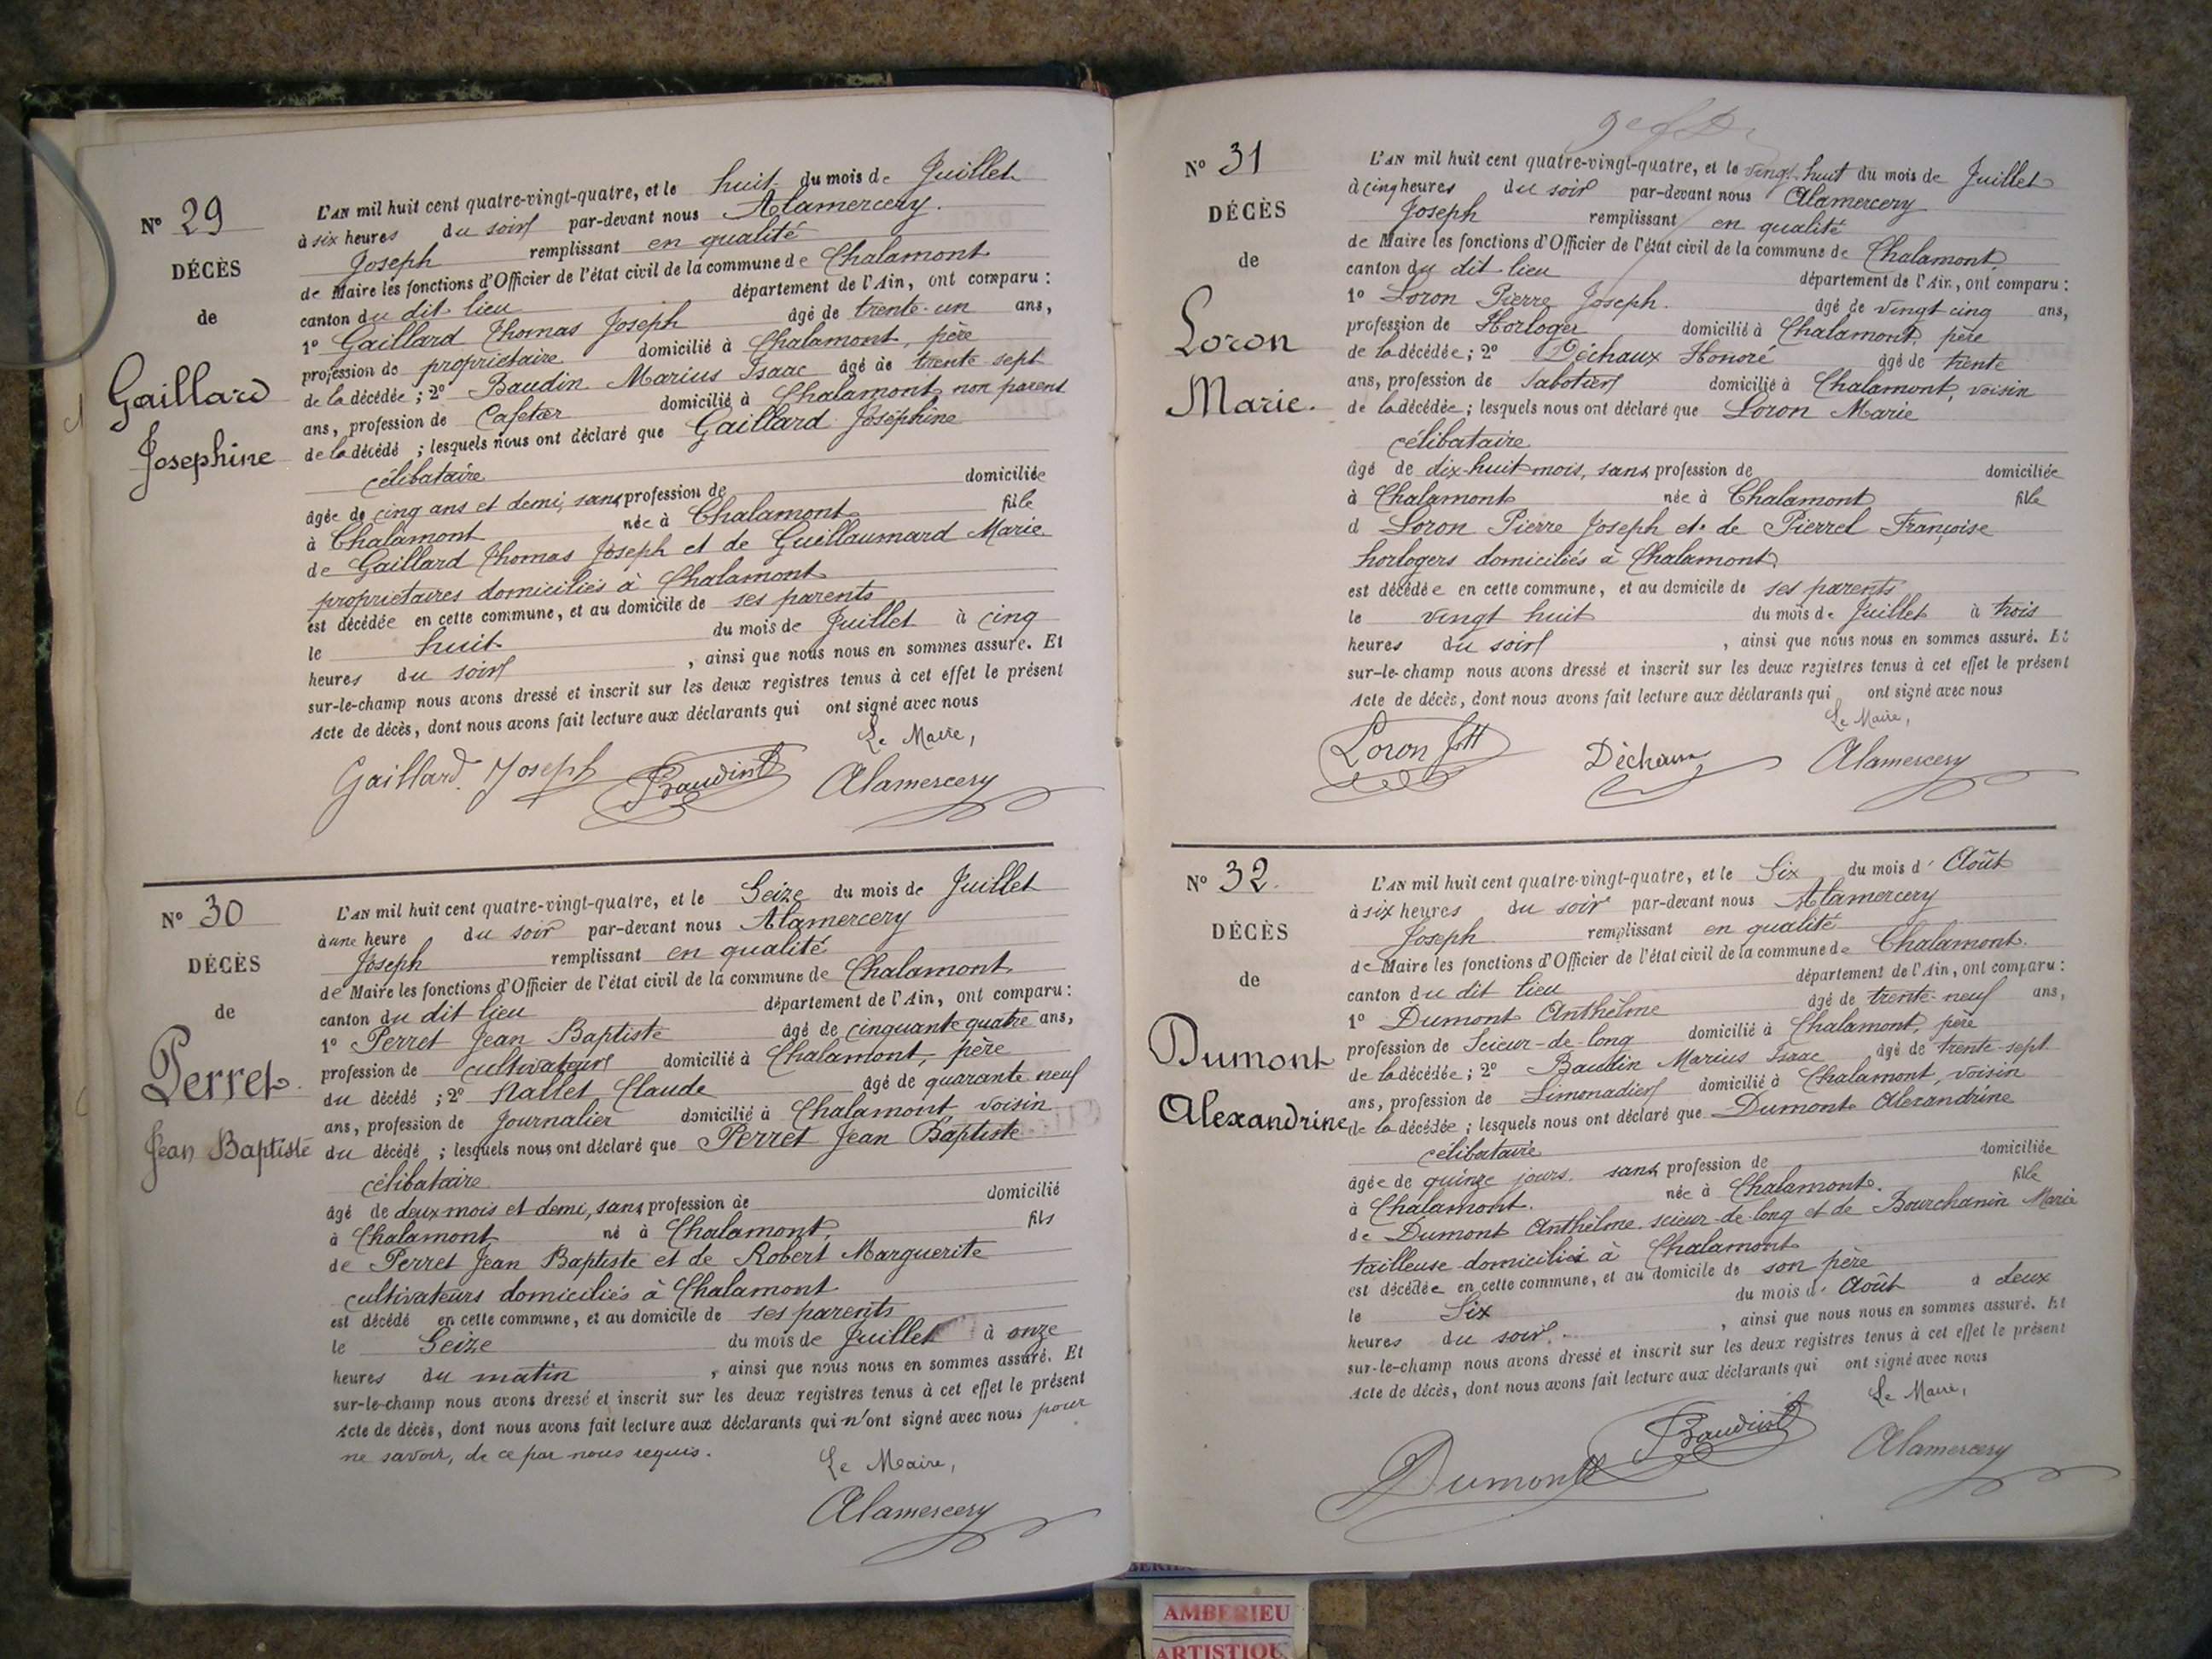 Nº 29
DÉCÈS
de
Gaillard
Josephine
L'AN mil huit cent quatre-vingt-quatre, et le huit du mois de Juillet
à six heures du soir par-devant nous Alamercery
Joseph remplissant en qualité
de Maire les fonctions d'Officier de l'état civil de la commune de Chalamont
canton du dit lieu département de l'Ain, ont comparu :
1º Gaillard Thomas Joseph âgé de trente-un ans,
profession de propriétaire domicilié à Chalamont, père
de la décédée ; 2º Baudin Marius Isaac âgé de trente sept
ans, profession de Cafetier domicilié à Chalamont non parent
de la décédé ; lesquels nous ont déclaré que Gaillard Joséphine
célibataire
âgée de cinq ans et demi, sans profession de domiciliée
à Chalamont née à Chalamont fille
de Gaillard Thomas Joseph et de Guillaumard Marie
propriétaires domiciliés à Chalamont
est décédée en cette commune, et au domicile de ses parents
le huit du mois de Juillet à cinq
heures du soir , ainsi que nous nous en sommes assuré. Et
sur-le-champ nous avons dressé et inscrit sur les deux registres tenus à cet effet le présent
Acte de décès, dont nous avons fait lecture aux déclarants qui ont signé avec nous
Le Maire,
Gaillard Joseph Baudin Alamercery
Nº 30
DÉCÈS
de
Perret
Jean Baptiste
L'AN mil huit cent quatre-vingt-quatre, et le Seize du mois de Juillet
à une heure du soir par-devant nous Alamercery
Joseph remplissant en qualité
de Maire les fonctions d'Officier de l'état civil de la commune de Chalamont
canton du dit lieu département de l'Ain, ont comparu :
1º Perret Jean Baptiste âgé de cinquante quatre ans,
profession de cultivateur domicilié à Chalamont, père
du décédé ; 2º Nallet Claude âgé de quarante neuf
ans, profession de Journalier domicilié à Chalamont voisin
du décédé ; lesquels nous ont déclaré que Perret Jean Baptiste
célibataire
âgé de deux mois et demi, sans profession de domicilié
à Chalamont né à Chalamont, fils
de Perret Jean Baptiste et de Robert Marguerite
cultivateurs domiciliés à Chalamont
est décédé en cette commune, et au domicile de ses parents
le Seize du mois de Juillet à onze
heures du matin , ainsi que nous nous en sommes assuré. Et
sur-le-champ nous avons dressé et inscrit sur les deux registres tenus à cet effet le présent
Acte de décès, dont nous avons fait lecture aux déclarants qui n'ont signé avec nous pour
ne savoir, de ce par nous requis.
Le Maire,
Alamercery
Nº 31
DÉCÈS
de
Loron
Marie.
L'AN mil huit cent quatre-vingt-quatre, et le vingt-huit du mois de Juillet
à cinq heures du soir par-devant nous Alamercery
Joseph remplissant en qualité
de Maire les fonctions d'Officier de l'état civil de la commune de Chalamont
canton du dit lieu département de l'Ain, ont comparu :
1º Loron Pierre Joseph. âgé de vingt cinq ans,
profession de Horloger domicilié à Chalamont, père
de la décédée ; 2º Déchaux Honoré âgé de trente
ans, profession de Sabotier domicilié à Chalamont, voisin
de la décédée ; lesquels nous ont déclaré que Loron Marie
célibataire
âgé de dix-huit mois, sans profession de domiciliée
à Chalamont née à Chalamont fille
d Loron Pierre Joseph et de Pierrel Françoise
horlogers domiciliés à Chalamont
est décédée en cette commune, et au domicile de ses parents
le vingt huit du mois de Juillet à trois
heures du soir , ainsi que nous nous en sommes assuré. Et
sur-le-champ nous avons dressé et inscrit sur les deux registres tenus à cet effet le présent
Acte de décès, dont nous avons fait lecture aux déclarants qui ont signé avec nous
Le Maire,
Loron Jph Déchaux Alamercery
Nº 32.
DÉCÈS
de
Dumont
Alexandrine
L'AN mil huit cent quatre-vingt-quatre, et le Six du mois d' Août
à six heures du soir par-devant nous Alamercery
Joseph remplissant en qualité
de Maire les fonctions d'Officier de l'état civil de la commune de Chalamont.
canton du dit lieu département de l'Ain, ont comparu :
1º Dumont Anthelme âgé de trente-neuf ans,
profession de Scieur-de-long domicilié à Chalamont, père
de la décédée ; 2º Baudin Marius Isaac âgé de trente-sept
ans, profession de Limonadier domicilié à Chalamont, voisin
de la décédée ; lesquels nous ont déclaré que Dumont Alexandrine
célibataire
âgée de quinze jours. sans profession de domiciliée
à Chalamont. née à Chalamont. fille
de Dumont Anthelme scieur-de-long et de Bourchanin Marie
tailleuse domiciliés à Chalamont
est décédée en cette commune, et au domicile de son père
le Six du mois d' Août à deux
heures du soir. , ainsi que nous nous en sommes assuré. Et
sur-le-champ nous avons dressé et inscrit sur les deux registres tenus à cet effet le présent
Acte de décès, dont nous avons fait lecture aux déclarants qui ont signé avec nous
Le Maire,
Dumont Baudin Alamercery
AMBERIEU